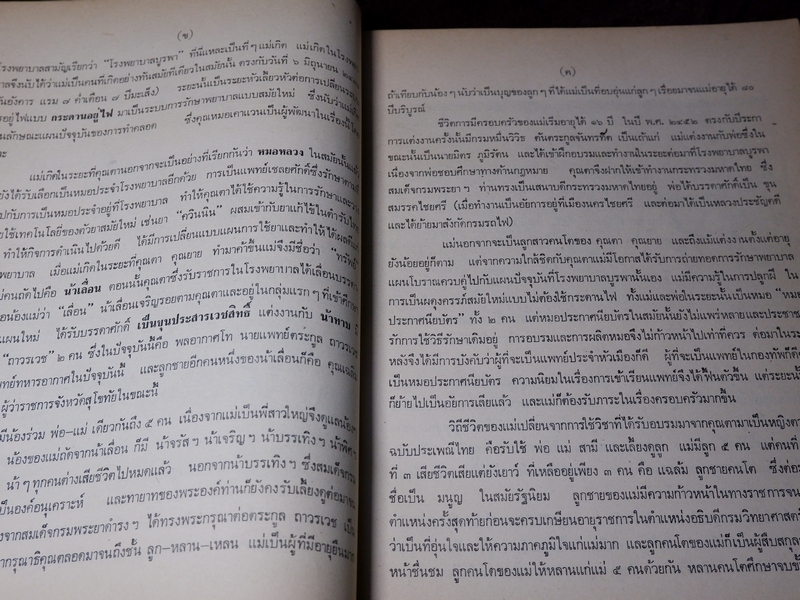 (ข)
โรงพยาบาลสามัญเรียกว่า "โรงพยาบาลบูรพา" ที่นี่แหละเป็นที่ๆ แม่เกิด แม่เกิดในโรงพ
บาลจึงนับได้ว่าแม่เป็นคนที่เกิดอย่างทันสมัยทีเดียวในสมัยนั้น ตรงกับวันที่ ๖ มิถุนายน
วันอังคาร แรม ๗ ค่ำเดือน ๗ ปีมะเส็ง) ระยะนั้นเป็นระยะหัวเลี้ยวหัวต่อการเปลี่ยน
อยู่ไฟแบบ กระดานอยู่ไฟ มาเป็นระบบการรักษาพยาบาลแบบสมัยใหม่ ซึ่งนับว่าแม่
นลักษณะแผนปัจจุบันของการทำคลอด ซึ่งคุณหมอเคาแวนเป็นผู้พัฒนาในเรื่องนี้
ละ
แม่เกิดในระยะที่คุณตานอกจากจะเป็นอย่างที่เรียกกันว่า หมอหลวง ในสมัยนั้นแล้ว
ยังได้รับเลือกเป็นหมอประจำโรงพยาบาลอีกด้วย การเป็นแพทย์เชลยศักดิ์ซึ่งรักษาตาม
ไปกับการเป็นหมอประจำอยู่ที่โรงพยาบาล ทำให้คุณตาได้ใช้ความรู้ในการรักษาและวา
ยใช้เทคโนโลยีของตัวยาสมัยใหม่ เช่นยา "ควินนิน" ผสมเข้ากับยาแก้ไข้ในตำรับไทย
ทำให้กิจการดำเนินไปด้วยดี ได้มีการเปลี่ยนแบบแผนการใช้ยาและทำให้ได้ผลดี
พยาบาล เมื่อแม่เกิดในระยะที่คุณตา คุณยาย ทำมาค้าขึ้นแม่จึงมีชื่อว่า "ทรัพย์"
คนถัดไปคือ น้าเลื่อน ตอนนั้นคุณตาซึ่งรับราชการในโรงพยาบาลได้เลื่อนบรรดา
น้องแม่ว่า "เลื่อน" น้าเลื่อนเจริญรอยตามคุณตาและอยู่ในกลุ่มแรกๆ ที่เข้าศึกษา
แผนใหม่ ได้รับบรรดาศักดิ์ เป็นขุนประสารเวชสิทธิ์ แต่งงานกับ น้าทาบ มี
"ถาวรเวช" ๒ คน ซึ่งในปัจจุบันนี้คือ พลอากาศโท นายแพทย์ตระกูล ถาวรเวช
พทย์ทหารอากาศในปัจจุบันนี้ และลูกชายอีกคนหนึ่งของน้าเลื่อนก็คือ คุณเฉลิม
ผู้ว่าราชการจังหวัดสุโขทัยในขณะนี้
มีน้องร่วม พ่อ-แม่ เดียวกันถึง ๕ คน เนื่องจากแม่เป็นพี่สาวใหญ่จึงดูแลน้อง
น้องของแม่ถัดจากน้าเลื่อน ก็มี น้าจรัสฯ น้าเจริญฯ น้าบรรเทิงฯ น้าพิศฯ
น้าๆ ทุกคนต่างเสียชีวิตไปหมดแล้ว นอกจากน้าบรรเทิงฯ ซึ่งสมเด็จกรม
เป็นองค์อุนเคราะห์ และทายาทของพระองค์ท่านก็ยังคงรับเลี้ยงดูต่อมา
จากสมเด็จกรมพระยาดำรงฯ ได้ทรงพระกรุณาต่อตระกูล ถาวรเวช เป็น
ากรุณาธิคุณตลอดมาจนถึงชั้น ลูก-หลาน-เหลน แม่เป็นผู้ที่มีอายุยืนมาก
(ค)
ถ้าเทียบกับน้องๆ นับว่าเป็นบุญของลูกๆ ที่ได้แม่เป็นที่อบอุ่นแก่ลูกๆ เรื่อยมาจนแม่อายุได้ ๘๐
ปีบริบูรณ์
ชีวิตการมีครอบครัวของแม่เริ่มอายุได้ ๑๖ ปี ในปี พ.ศ. ๒๔๕๒ ตรงกับปีระกา
การแต่งงานครั้งนั้นมีกรมหมื่นวิวิธ ต้นตระกูลจันทรทัต เป็นเถ้าแก่ แม่แต่งงานกับพ่อซึ่งใน
ขณะนั้นเป็นนายมิตร ภูมิรัตน และได้เข้าฝึกอบรมและทำงานในระยะต่อมาที่โรงพยาบาลบูรพา
เนื่องจากพ่อชอบศึกษาทางด้านกฎหมาย คุณตาจึงฝากให้เข้าทำงานกระทรวงมหาดไทย ซึ่ง
สมเด็จกรมพระยาฯ ท่านทรงเป็นเสนาบดีกระทรวงมหาดไทยอยู่ พ่อได้บรรดาศักดิ์เป็น ขุน
สมรรคไชยศรี (เมื่อทำงานเป็นอัยการอยู่ที่เมืองนครไชยศรี และต่อมาได้เป็นหลวงประชุมคดี
และได้ย้ายมาสังกัดกรมรถไฟ)
แม่นอกจากจะเป็นลูกสาวคนโตของ คุณตา คุณยาย และถึงแม้แต่งงานตั้งแต่อายุ
ยังน้อยอยู่ก็ตาม แต่จากความใกล้ชิดกับคุณตาแม่มีโอกาสได้รับการถ่ายทอดการรักษาพยาบาล
แผนโบราณควบคู่ไปกับแผนปัจจุบันที่โรงพยาบาลบูรพานั้นเอง แม่มีความรู้ในการปลูกฝี ใน
การเป็นผดุงครรภ์สมัยใหม่แบบไม่ต้องใช้กระดานไฟ ทั้งแม่และพ่อในระยะนั้นเป็นหมอ "หมอ
ประกาศนียบัตร" ทั้ง ๒ คน แต่หมอประกาศนียบัตรในสมัยนั้นยังไม่แพร่หลายและประชาช
รักการใช้วิธีรักษาเดิมอยู่ การอบรมและการผลิตหมอจึงไม่ก้าวหน้าไปเท่าที่ควร ต่อมาในระยะ
หลังจึงได้มีการบังคับว่าผู้ที่จะเป็นแพทย์ประจำหัวเมืองก็ดี ผู้ที่จะเป็นแพทย์ในกองทัพก็ดี
เป็นหมอประกาศนียบัตร ความนิยมในเรื่องการเข้าเรียนแพทย์จึงได้ฟื้นตัวขึ้น แต่ระยะนั้
ก็ย้ายไปเป็นอัยการเสียแล้ว และแม่ก็ต้องรับภาระในเรื่องครอบครัวมากขึ้น
วิถีชีวิตของแม่เปลี่ยนจากการใช้วิชาที่ได้รับอบรมมาจากคุณตามาเป็นหญิงตา
ฉบับประเพณีไทย คือรับใช้ พ่อ แม่ สามี และเลี้ยงดูลูก แม่มีลูก ๕ คน แต่คนที่
ที่ ๓ เสียชีวิตเสียแต่ยังเยาว์ ที่เหลืออยู่เพียง ๓ คน คือ แฉล้ม ลูกชายคนโต ซึ่งต่อ
ชื่อเป็น มนูญ ในสมัยรัฐนิยม ลูกชายของแม่มีความก้าวหน้าในทางราชการจน
ตำแหน่งครั้งสุดท้ายก่อนจะครบเกษียนอายุราชการในตำแหน่งอธิบดีกรมวิทยาศาสตร์
ว่าเป็นที่อุ่นใจและให้ความภาคภูมิใจแก่แม่มาก และลูกคนโตของแม่ก็เป็นผู้สืบสกุล
หน้าชื่นชม ลูกคนโตของแม่ให้หลานแก่แม่ ๕ คนด้วยกัน หลานคนโตศึกษาจบชั้